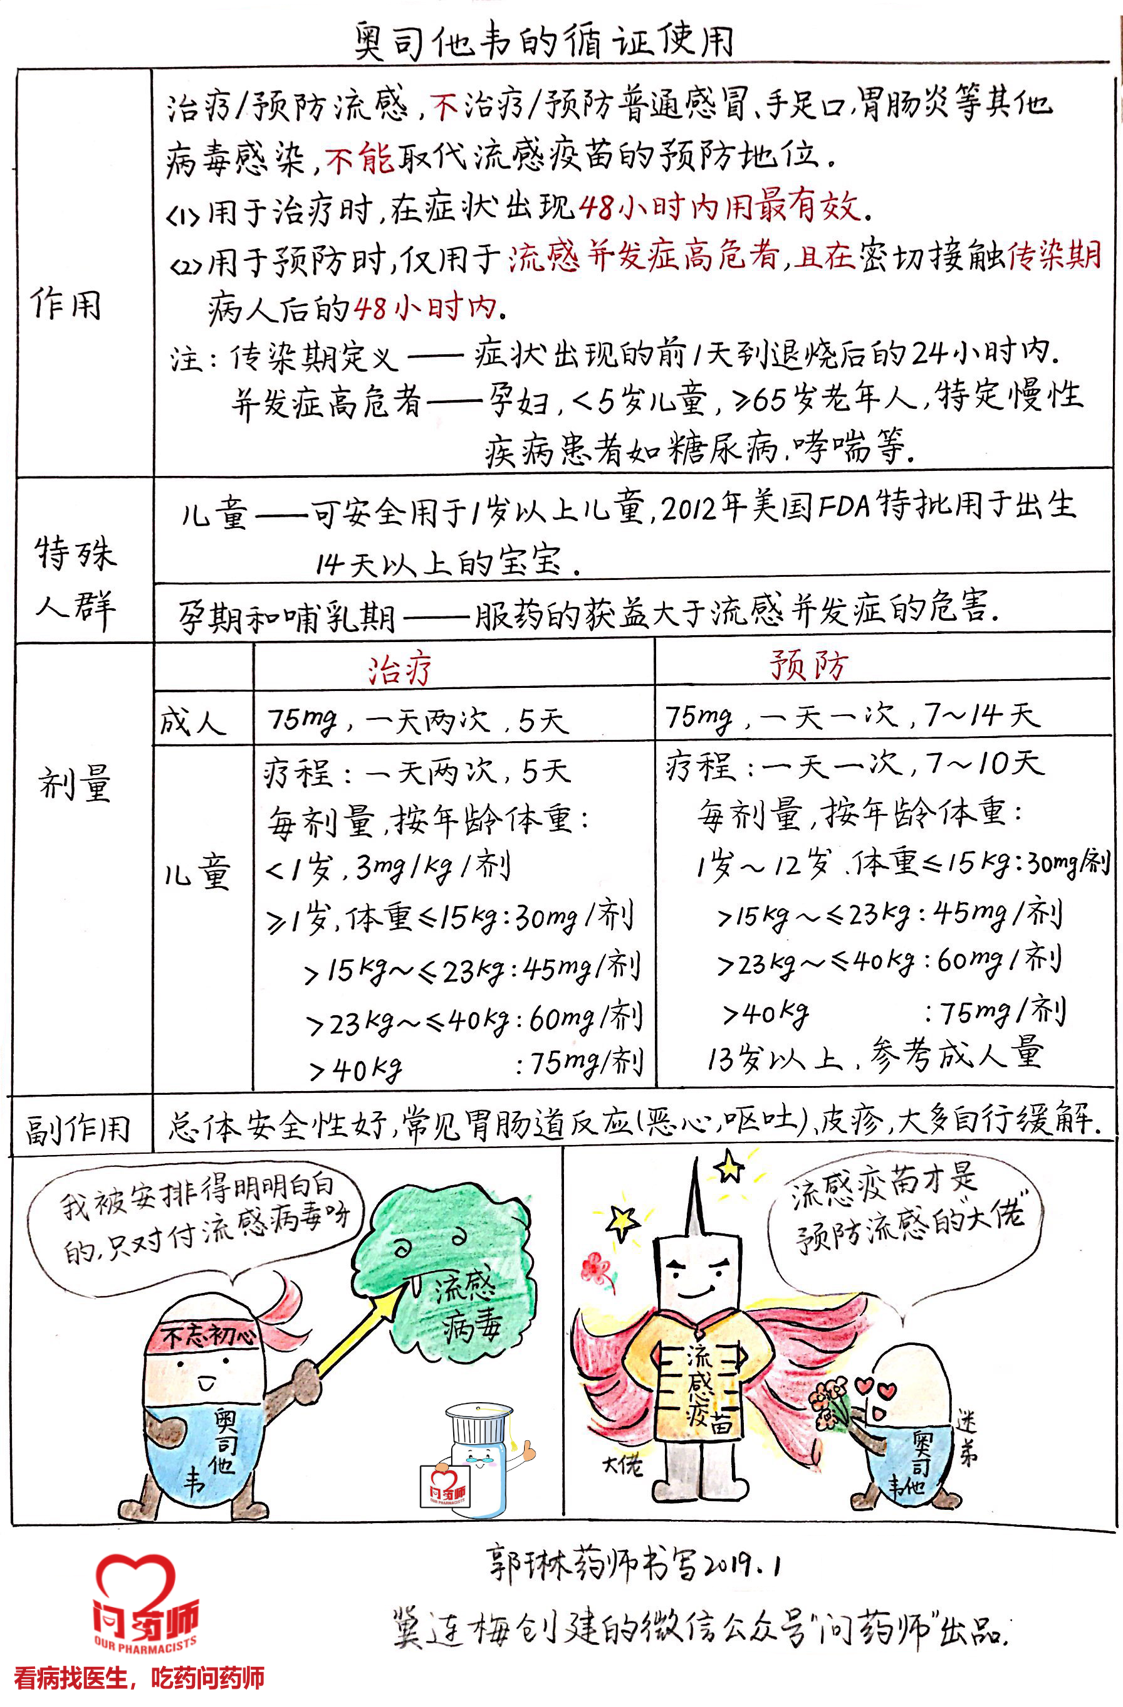 奥司他韦的循证使用
作用
治疗/预防流感,不治疗/预防普通感冒、手足口,胃肠炎等其他
病毒感染,不能取代流感疫苗的预防地位.
<1>用于治疗时,在症状出现48小时内用最有效.
<2>用于预防时,仅用于流感并发症高危者,且在密切接触传染期
病人后的48小时内.
注:传染期定义——症状出现的前1天到退烧后的24小时内.
并发症高危者——孕妇,<5岁儿童,≥65岁老年人,特定慢性
疾病患者如糖尿病,哮喘等.
特殊
人群
儿童——可安全用于1岁以上儿童,2012年美国FDA特批用于出生
14天以上的宝宝.
孕期和哺乳期——服药的获益大于流感并发症的危害.
剂量
治疗
预防
成人
75mg,一天两次,5天
75mg,一天一次,7~14天
儿童
疗程:一天两次,5天
每剂量,按年龄体重:
<1岁,3mg/kg/剂
≥1岁,体重≤15kg:30mg/剂
>15kg~≤23kg:45mg/剂
>23kg~≤40kg:60mg/剂
>40kg :75mg/剂
疗程:一天一次,7~10天
每剂量,按年龄体重:
1岁~12岁、体重≤15kg:30mg/剂
>15kg~≤23kg:45mg/剂
>23kg~≤40kg:60mg/剂
>40kg :75mg/剂
13岁以上,参考成人量
副作用
总体安全性好,常见胃肠道反应(恶心,呕吐)、皮疹,大多自行缓解.
我被安排得明明白白
的,只对付流感病毒呀
流感
病毒
不忘初心
奥司他韦
问药师
OUR PHARMACISTS
流感疫苗才是
预防流感的"大佬"
流感疫苗
大佬
奥司他韦
迷弟
郭琳药师书写2019.1
冀连梅创建的微信公众号"问药师"出品.
问药师
OUR PHARMACISTS
看病找医生,吃药问药师